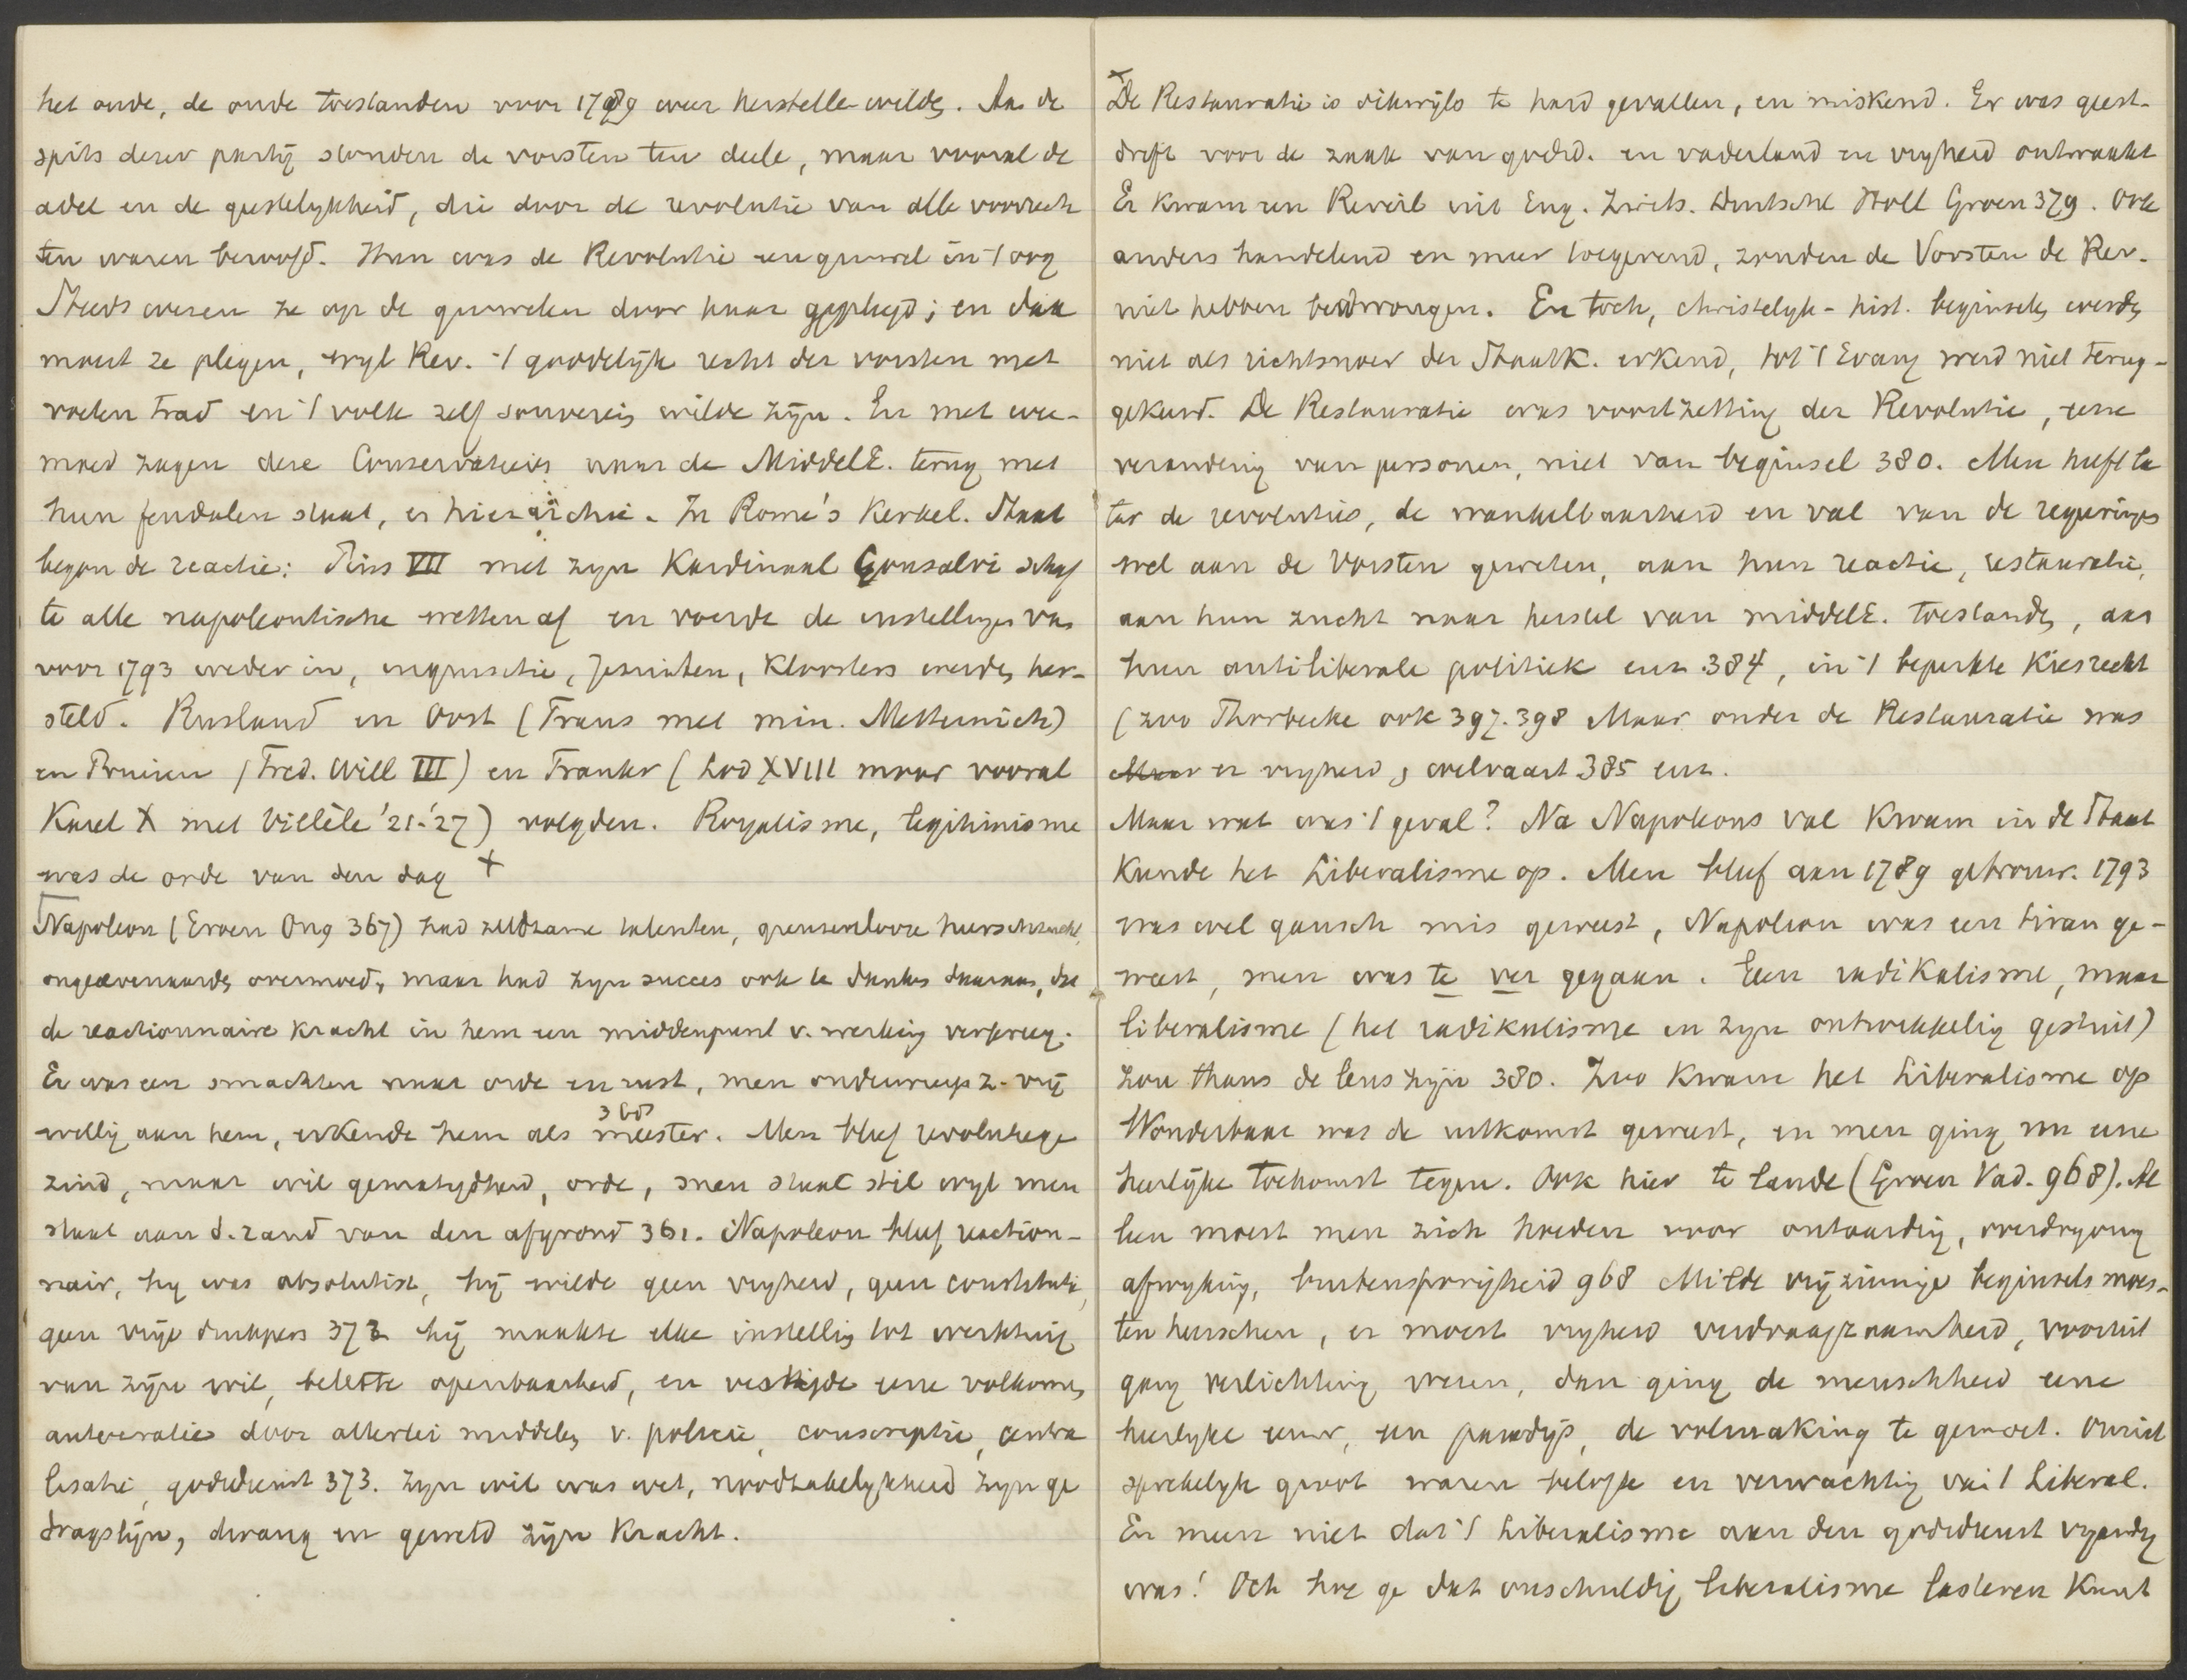 het oude, de oude toestanden voor 1789 weer herstellen wilde. Aan de
spits dezer partij stonden de vorsten ten deele, maar vooral de
adel en de geestelykheid, die door de revolutie van alle voorrech
ten waren beroofd. Hun was de Revolutie een gruwel in 't oog
Steeds wezen ze op de gruwelen door haar gepleegd; en dan
moest ze plegen, wyl Rev. 't goddelijk recht der vorsten met
voeten trad en 't volk zelf souverein wilde zijn. En met wee-
moed zagen deze Conservatieven naar de MiddelE. terug met
hun feudalen staat, en hierarchie. In Rome's Kerkel. Staat
begon de reactie: Pius VII met zyn Kardinaal Gonsalvi schaf
te alle napoleontische wetten af en voerde de instellingen van
voor 1793 weder in, inquisitie, Jesuiten, Kloosters werden her-
steld. Rusland en Oost (Frans met min. Metternich)
en Pruisen (Fred. Will III) en Frankr (Lod XVIII maar vooral
Karel X met Villèle '21-'27) volgden. Royalisme, legitimisme
was de orde van den dag +
Napoleon (Groen Ong 367) had zeldzame talenten, grenzenlooze heerschzucht,
ongeëvenaarde overmoed, maar had zyn succes ook te danken daaraan, dat
de reactionnaire kracht in hem een middenpunt v. werking verkreeg.
Er was een smachten naar orde en rust, men onderwierp z. vrij
willig aan hem, erkende hem als meester. Men bleef revolutiege
360
zind, maar wil gematigdheid, orde, men staat stil wyl men
staat aan d. rand van den afgrond 361. Napoleon bleef reaction-
nair, hy was absolutist, hij wilde geen vryheid, geen constitutie,
geen vrije drukpers 372 hij maakte elke instelling tot werktuig
van zijn wil, belette openbaarheid, en vestigde eene volkomen
autocratie door allerlei middelen v. policie, conscriptie, centra
lisatie, godsdienst 373. Zyn wil was wet, noodzakelykheid zyn ge
dragslijn, dwang en geweld zijn Kracht.
+
De Restauratie is dikwijls te hard gevallen, en miskend. Er was geest-
drift voor de zaak van godsd. en vaderland en vryheid ontwaakt
Er Kwam een Reveil uit Eng. Zwits. Duitschl Holl Groen 379. Ook
anders handelend en meer toegevend, zouden de Vorsten de Rev.
niet hebben bedwongen. En toch, christelyk-hist. beginselen werden
niet als richtsnoer der Staatk. erkend, tot 't Evang werd niet terug-
gekeerd. De Restauratie was voortzetting der Revolutie, eene
verandering van personen, niet van beginsel 380. Men heeft la
ter de revoluties, de wankelbaarheid en val van de regeringen
wel aan de Vorsten geweten, aan hun reactie, restauratie,
aan hun zucht naar herstel van middelE. toestanden, aan
hun antiliberale politiek enz. 384, in 't beperkte Kiesrecht
(zoo Thorbecke ook 397.398 Maar onder de Restauratie was
er vryheid, welvaart 385 enz.
Maar wat was 't geval? Na Napoleons val Kwam in de Staat
Kunde het Liberalisme op. Men bleef aan 1789 getrouw. 1793
was wel gansch mis geweest, Napoleon was een tiran ge-
weest, men was te ver gegaan. Geen radikalisme, maar
liberalisme (het radikalisme in zyn ontwikkeling gestuit)
zou thans de leus zijn 380. Zoo Kwam het Liberalisme op
Wonderbaar was de uitkomst geweest, en men ging nu eene
heerlijke toekomst tegen. Ook hier te lande (Groen Vad. 968). Al
leen moest men zich hoeden voor ontaarding, overdryving
afwyking, buitensporigheid 968 Milde vrijzinnige beginsels moes-
ten heerschen, er moest vryheid verdraagzaamheid, vooruit
gang verlichting wezen, dan ging de menschheid eene
heerlyke eeuw, een paradijs, de volmaking te gemoet. Onuit
sprekelyk groot waren belofte en verwachting van 't Liberal.
En meen niet dat 't Liberalisme aan den godsdienst vyandig
was! Och hoe ge dat onschuldig liberalisme lasteren Kunt